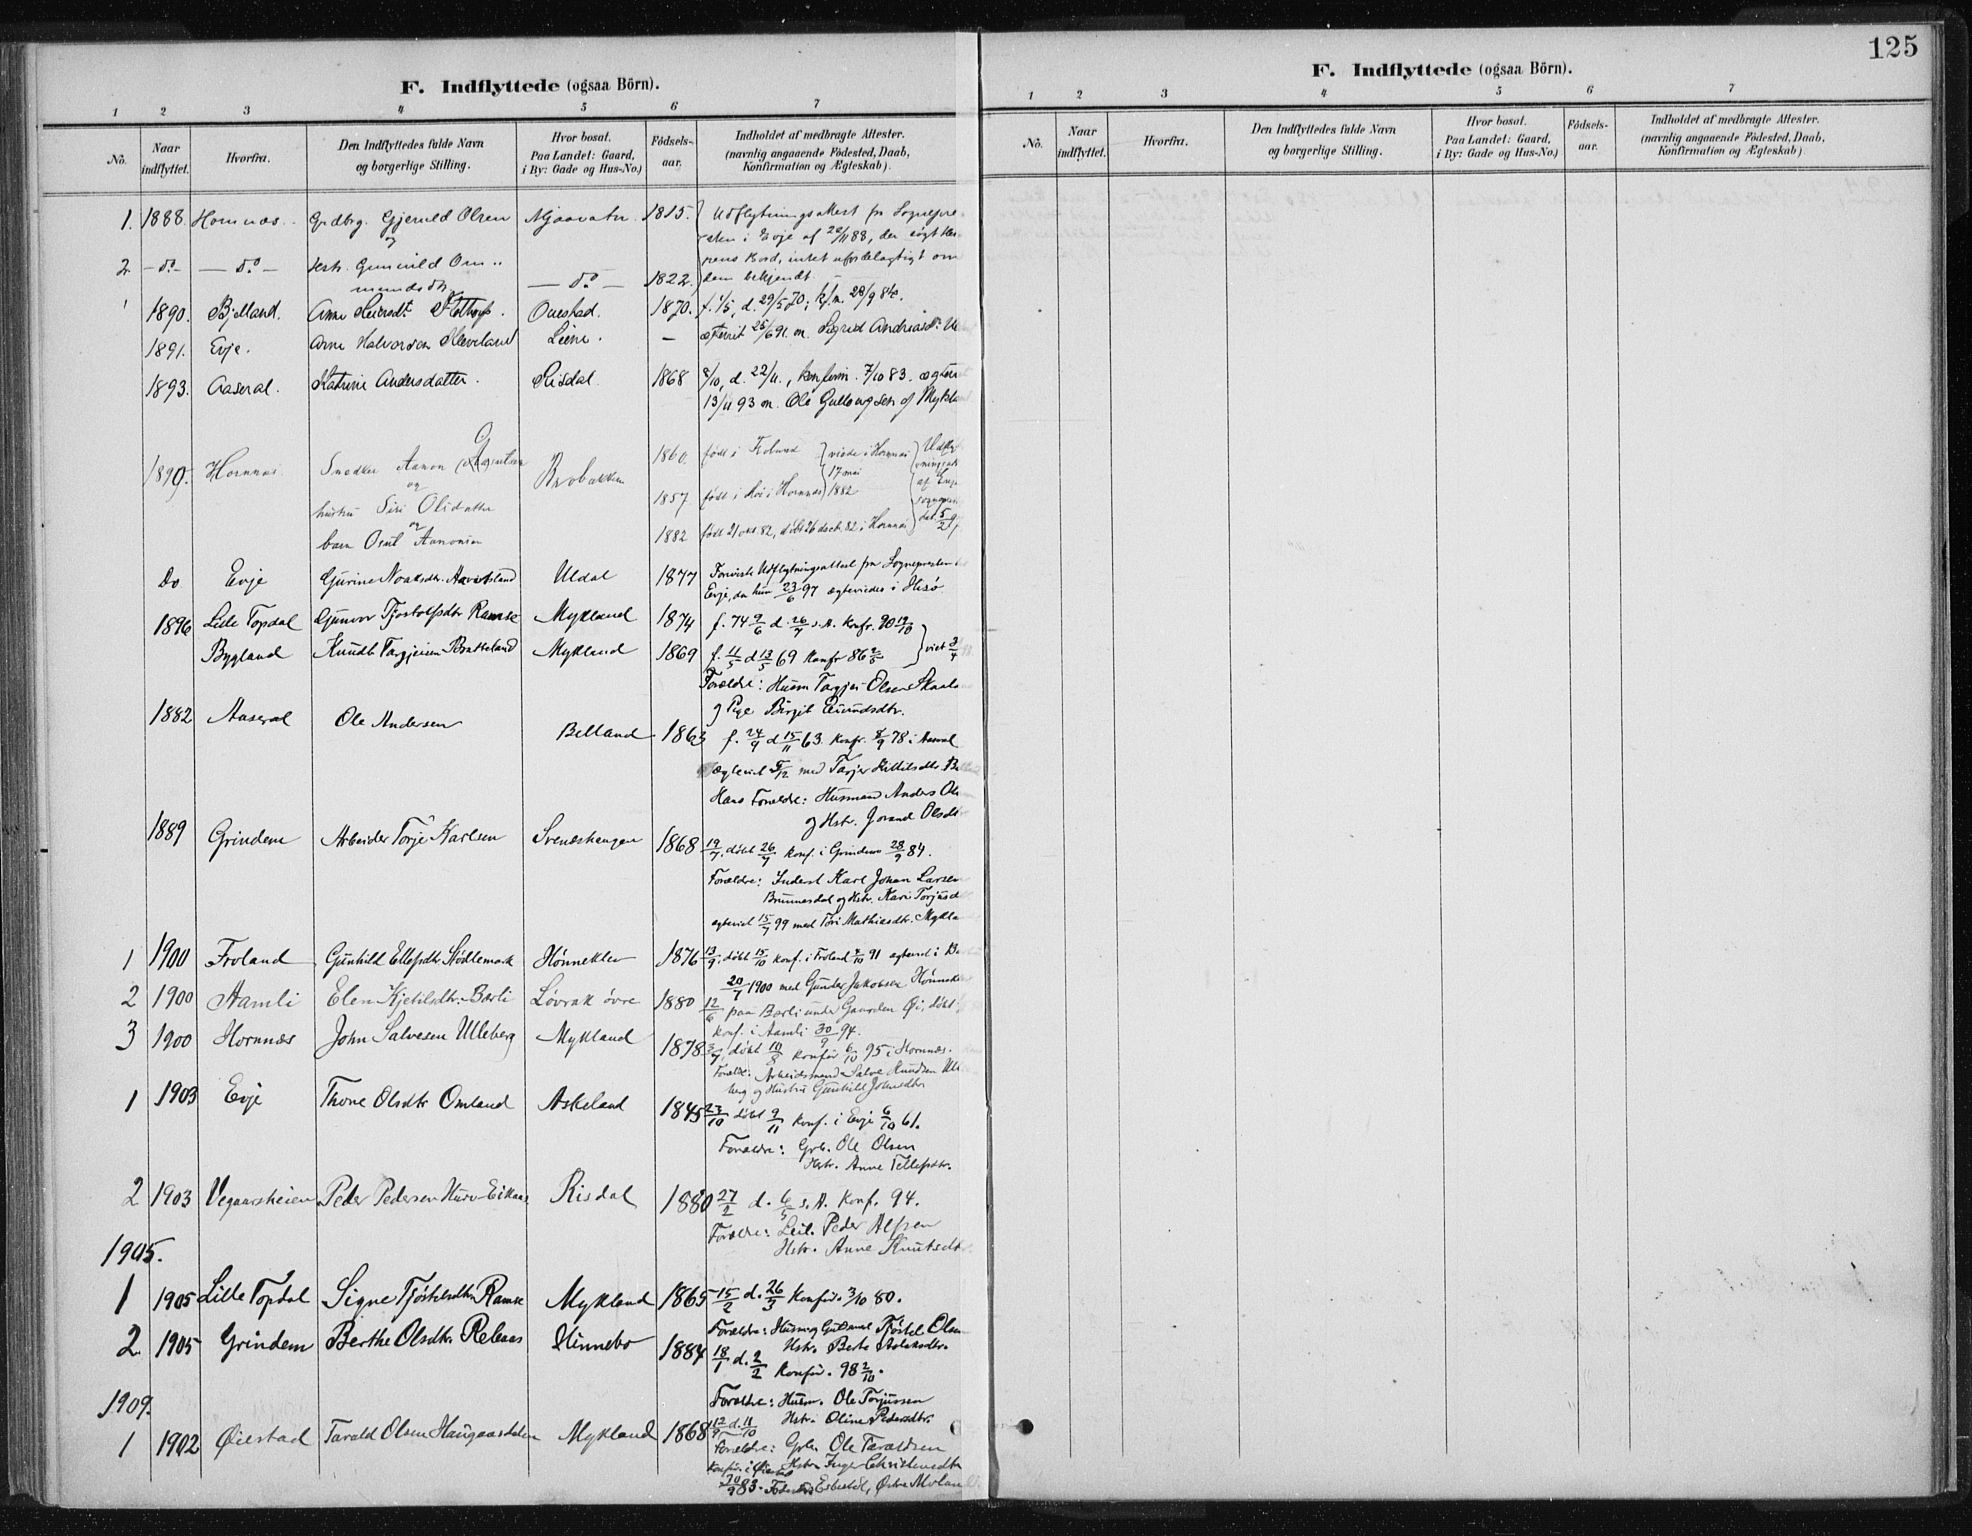 125
F. Indflyttede (ogsaa Börn).
1 2 3 4 5 6 7
No. Naar indflyttet. Hvorfra. Den Indflyttedes fulde Navn og borgerlige Stilling. Hvor bosat. Paa Landet: Gaard, i By: Gade og Hus-No.) Födsels-aar. Indholdet af medbragte Attester. (navnlig angaaende Födested, Daab, Konfirmation og Ægteskab).
1. 1888. Hornnæs. Grdbrg. Gjeruld Olsen Mjaavatn. 1815. Udflytningsattest fra Sognepre-
sten i Evje af 22/11 88, den søgt Her-
2. - do - - do - Hstr. Gunvild Om.. - do - 1822. rens Bord, intet ufordelagtigt om
mundsdtr. dem bekjendt
1 1890. Bjelland. Anne 1870. f. 1/5, d. 29/5 70; kfm. 28/9 84.
1891. Evje. Arne Halvorsen Kleveland Liene. - ægteviet 25/6 91. m. Sigrid Andreasd.
1893. Aaseral. Katrine Andersdatter. Risdal. 1868 8/10, d. 22/11., konfirm. 7/10 83. ægtevi
13/11 93 m. Ole Gullovgsen af Mykla
1895. Hornnæs Snedker Aamon Brobakken 1860. født i Froland viede i Hornnæs Udfly
og 17 mai tningsatt
hustru Siri Olsdatter 1857. født i Hornnæs 1882 af
og sognepr
barn Osul Aamonsen 1882 født 21 okt. 82, døbt 26 decb. 82 i Hornnæs dat. 5/2
Do Evje Gurine Noaksdtr. Aavitsland Uldal 1877 Forevist Udflytningsattest fra Sognepresten
Evje, da hun 23/6 97 ægteviedes i Hisø
1896 Lille Topdal Gunvor Tjostolfsdtr Ramse Mykland 1874 f. 74 9/6 d. 26/7 s.A. Konfr. 90 19/10
Bygland Knudt Targjeisen Bratteland Mykland 1869 f. 11/5 d 13/5 69 Konfr 86 viet
Forældre: Husm Targjei Olsen Skaala
og Pige Birgit Eivindsdtr.
1882 Aaseral Ole Andersen Belland 1863 f. 24/9 d 15/11 63. Konfr. 8/9 78 i Aaseral
ægteviet 5/12 med Tarjer Kittilsdtr. B
Hans Forældre: Husmand Anders Ol
og Hstr. Jorand Olsdt
1889 Grindem Arbeider Torje Karlsen Svenæshaugen 1868 19/7, døbt 26/7 Konf. i Grindem 28/9 84.
Forældre: Inderst Karl Johan Larsen
Brunnesdal og Hstr. Kari Torjusd
ægteviet 15/7 99 med Tori Mathiasdtr. Mykla
1 1900 Froland Gunhild Ellefsdtr Hønneklev 1876 13/9, døbt 15/10 Konf. i Froland 4/10 91 ægteviet i
20/7 1900 med Gunder Jakobsen Hønnek
2 1900 Aamli Elen Kjetilsdtr. Bærli Løvrak øvre 1880 12/6 paa Bærli under Gaarden Øi, døbt
konf. i Aamli 30/9 94.
3 1900 Hornnæs John Salvesen Ulleberg Mykland 1878 3/7, døbt 10/8 konfir 6/10 95 i Hornnæs.
Foræld: Arbeidsmand Salve Knudsen Ulle
berg og Hustru Gunhild Johnsdtr
1 1903 Evje Thone Olsdtr Omland Askeland 1845 23/10 døbt 9/11 Konf. i Evje 6/10 61.
Forældre: Grb. Ole Olsen
Hstr. Anne Tellefsdtr.
2 1903 Vegaarsheien Peder Pedersen Risdal 1880 27/2 d. 6/5 s.A. Konf. 94.
Forældre: Leil. Peder Alfsen
Hstr. Anne Knutsdtr
1905.
1 1905 Lille Topdal Signe Tjøstelsdtr Ramse Mykland 1865 15/2 d. 26/3 Konfir. 3/10 80.
Forældre: Husm og Tjøstel Olsen
2. 1905 Grindem Berthe Olsdtr Rebaas Hinnebo 1884 Hstr. Berte Aslaksdtr.
18/1 d. 2/2 Konfir. 98 2/10.
1909. Forældre: Husm. Ole Torjussen
Hstr. Oline Pedersdtr.
1 1902 Øiestad Tarald Olsen Haugaasdalen Mykland 1868 12/9 d. 11/10
Forældre: Grbr. Ole Taraldsen
Konfir. i Øiestad Hstr. Inger Christensdtr
30/9 83. Fødested Østre Moland
F. Indflyttede (ogsaa Börn).
1 2 3 4 5 6 7
No. Naar indflyttet. Hvorfra. Den Indflyttedes fulde Navn og borgerlige Stilling. Hvor bosat. Paa Landet: Gaard, i By: Gade og Hus-No.) Födsels-aar. Indholdet af medbragte Attester. (navnlig angaaende Födested, Daab, Konfirmation og Ægteskab)